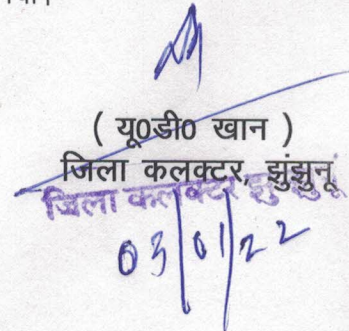 ( यू0डी0 खान )
जिला कलक्टर, झुंझुनू
जिला कलक्टर झुंझुनूं
03/01/22